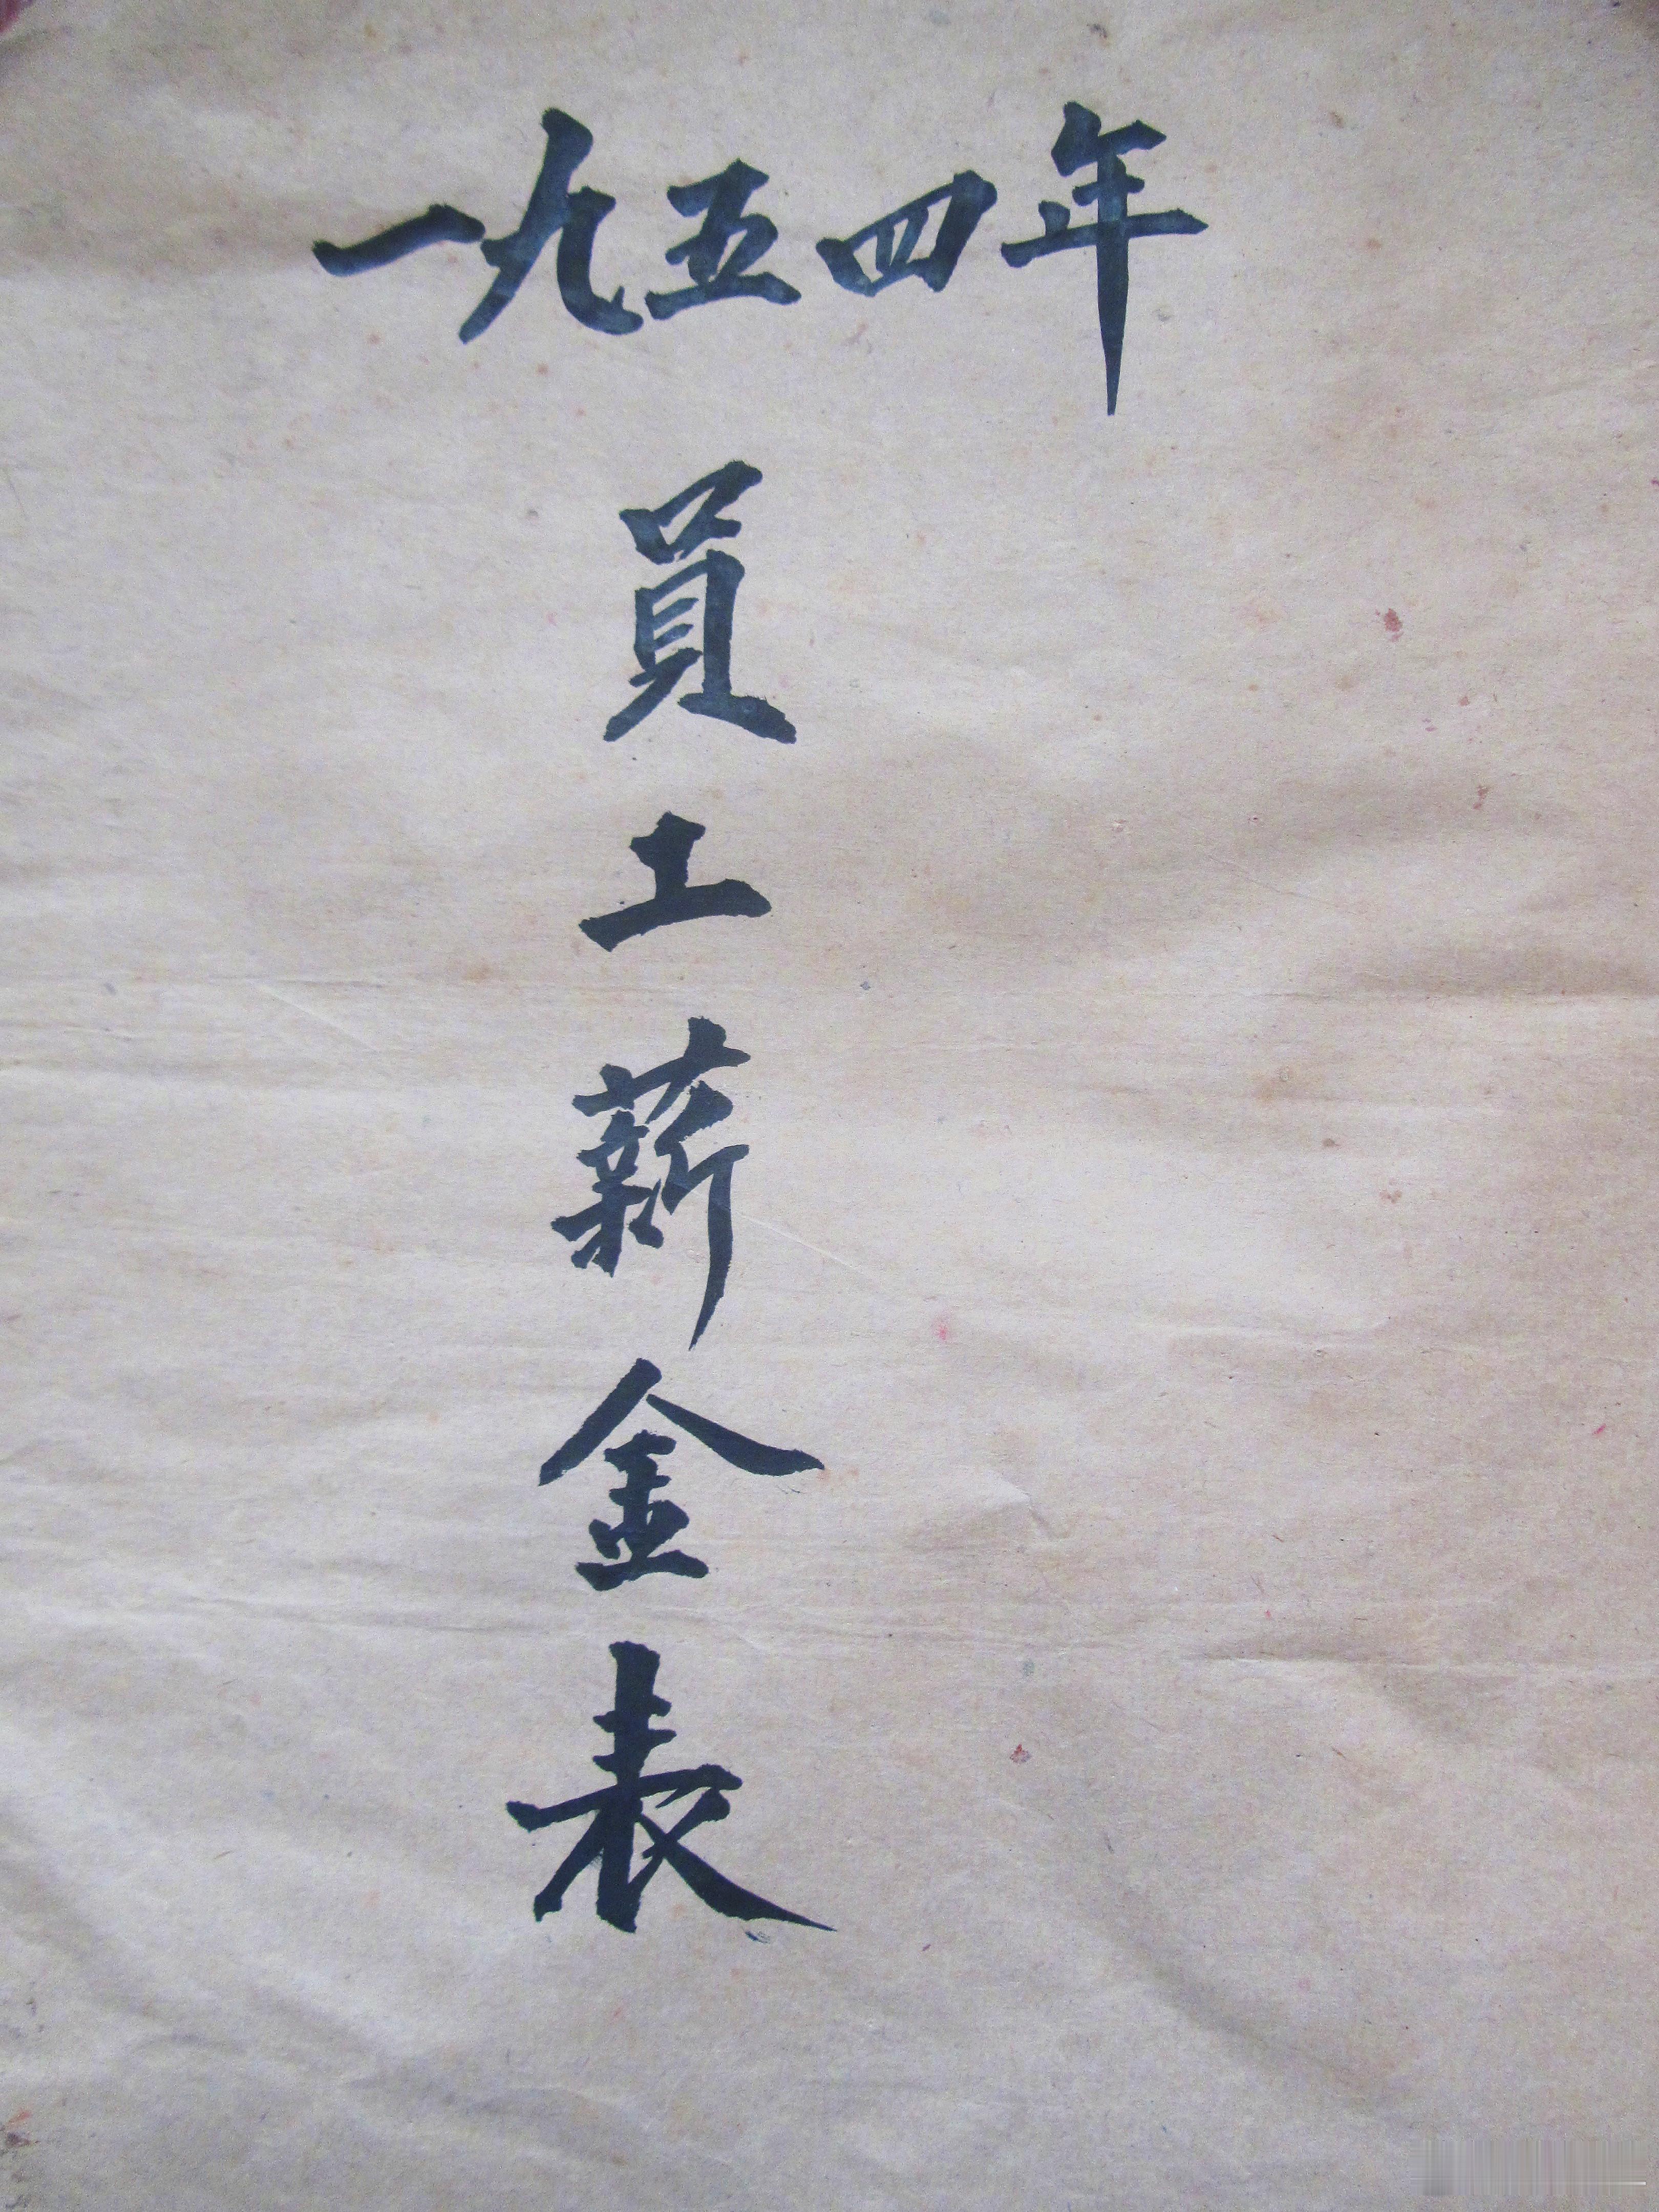 一九五四年
員工薪金表